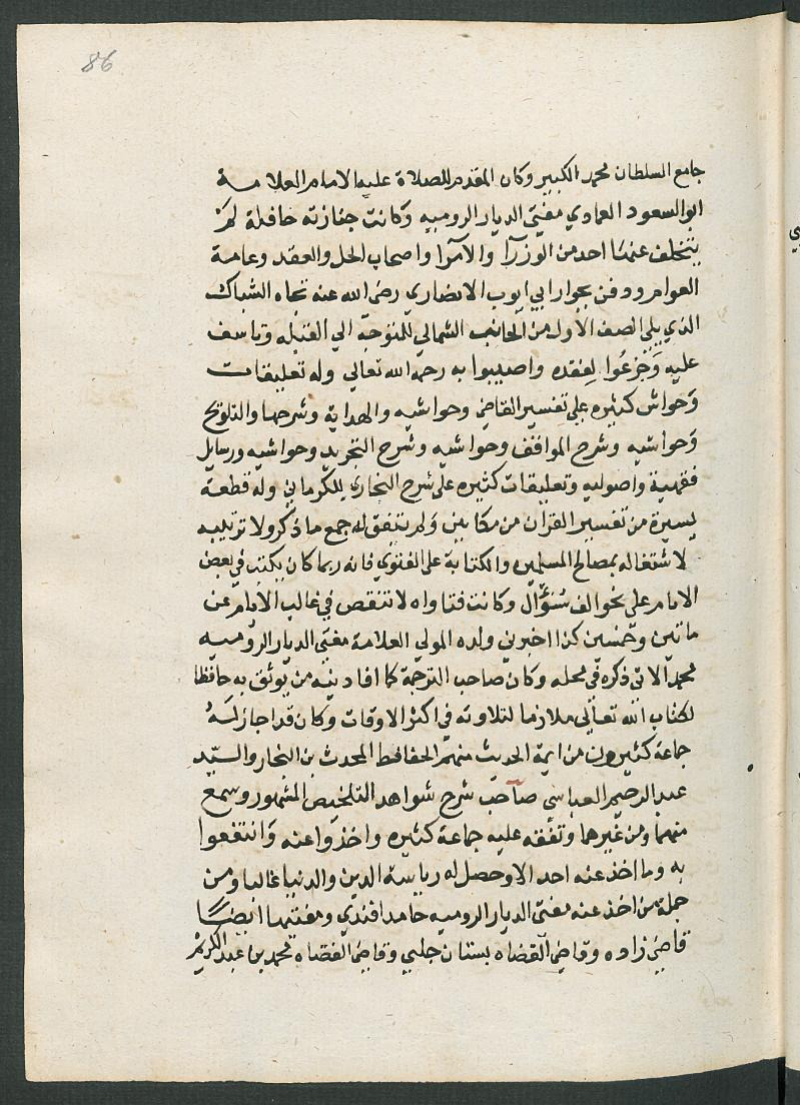 86
جامع السلطان محمد الكبير وكان المقدم للصلاة عليه الامام العلامة
ابو السعود العمادي مفتي الديار الروميه وكانت جنازته حافلة لم
يتخلف عنها احد من الوزرآ والامرآ واصحاب الحل والعقد وعامة
العوام ودفن بجوار ابي ايوب الانصاري رضي الله عنه تجاه الشباك
الذي يلي الصف الاول من الجانب الشمالي للمتوجه الي القبله وتاسف
عليه وَجَزِعُوا لِفقده واصيبوا به رحمه الله تعالي وله تعليقات
وَحواش كثيره علي تفسير القاضي وحواشيه والهداية وشرحها والتلويح
وَحواشيه وشرح المواقف وحواشيه وشرح التجريد وحواشيه ورسايل
فقهية واصوليه وتعليقات كثيره علي شرح البخاري للكرماني وله قطعة
يسيرة من تفسير القرآن من مكانين وَلم يتفق له جمع ما ذكر ولا ترتيبه
لاشتغاله بمصالح المسلمين والكتابة علي الفتوي فانه ربما كان يكتب في بعض
الايام علي نحو الف سُئؤَّال وكانت فتاواه لا تنقص في غالب الأيام عن
ماتين وخمسين كذا اخبرني ولده المولي العلامة مفتي الديار الروميه
محمد الاتي ذكره في محله وكان صاحب الترجمة كما افادنيه من يوثق به حافظا
لكتاب الله تعالي ملازما لتلاوته في اكثر الاوقات وكان قد اجاز لَهُ
جماعة كثيرون من ايمة الحديث منهم الحافظ المحدث بن النجار والسيّد
عبد الرحيم العباسي صاحب شرح شواهد التلخيص المشهور وسمع
منهما ومن غيرهما وتفقه عليه جماعة كثيره واخذوا عنه وَانتفعوا
به وما اخذ عنه احد الا وحصل له رياسة الدين والدنيا غالبا ومن
جملة من اخذ عنه مفتي الديار الروميه حامد افندي ومفتيها ايضًا
قاضي زاده وقاضي القضاه بستان جلبي وقاضي القضاه محمد بن عبد الكريم